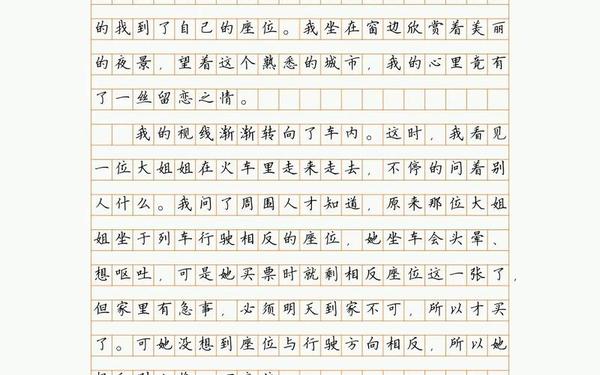 的找到了自己的座位。我坐在窗边欣赏着美丽
的夜景，望着这个熟悉的城市，我的心里竟有
了一丝留恋之情。
我的视线渐渐转向了车内。这时，我看见
一位大姐姐在火车里走来走去，不停的问着别
人什么。我问了周围人才知道，原来那位大姐
姐坐于列车行驶相反的座位，她坐车会头晕、
想呕吐，可是她买票时就剩相反座位这一张了，
但家里有急事，必须明天到家不可，所以才买
了。可她没想到座位与行驶方向相反，所以她